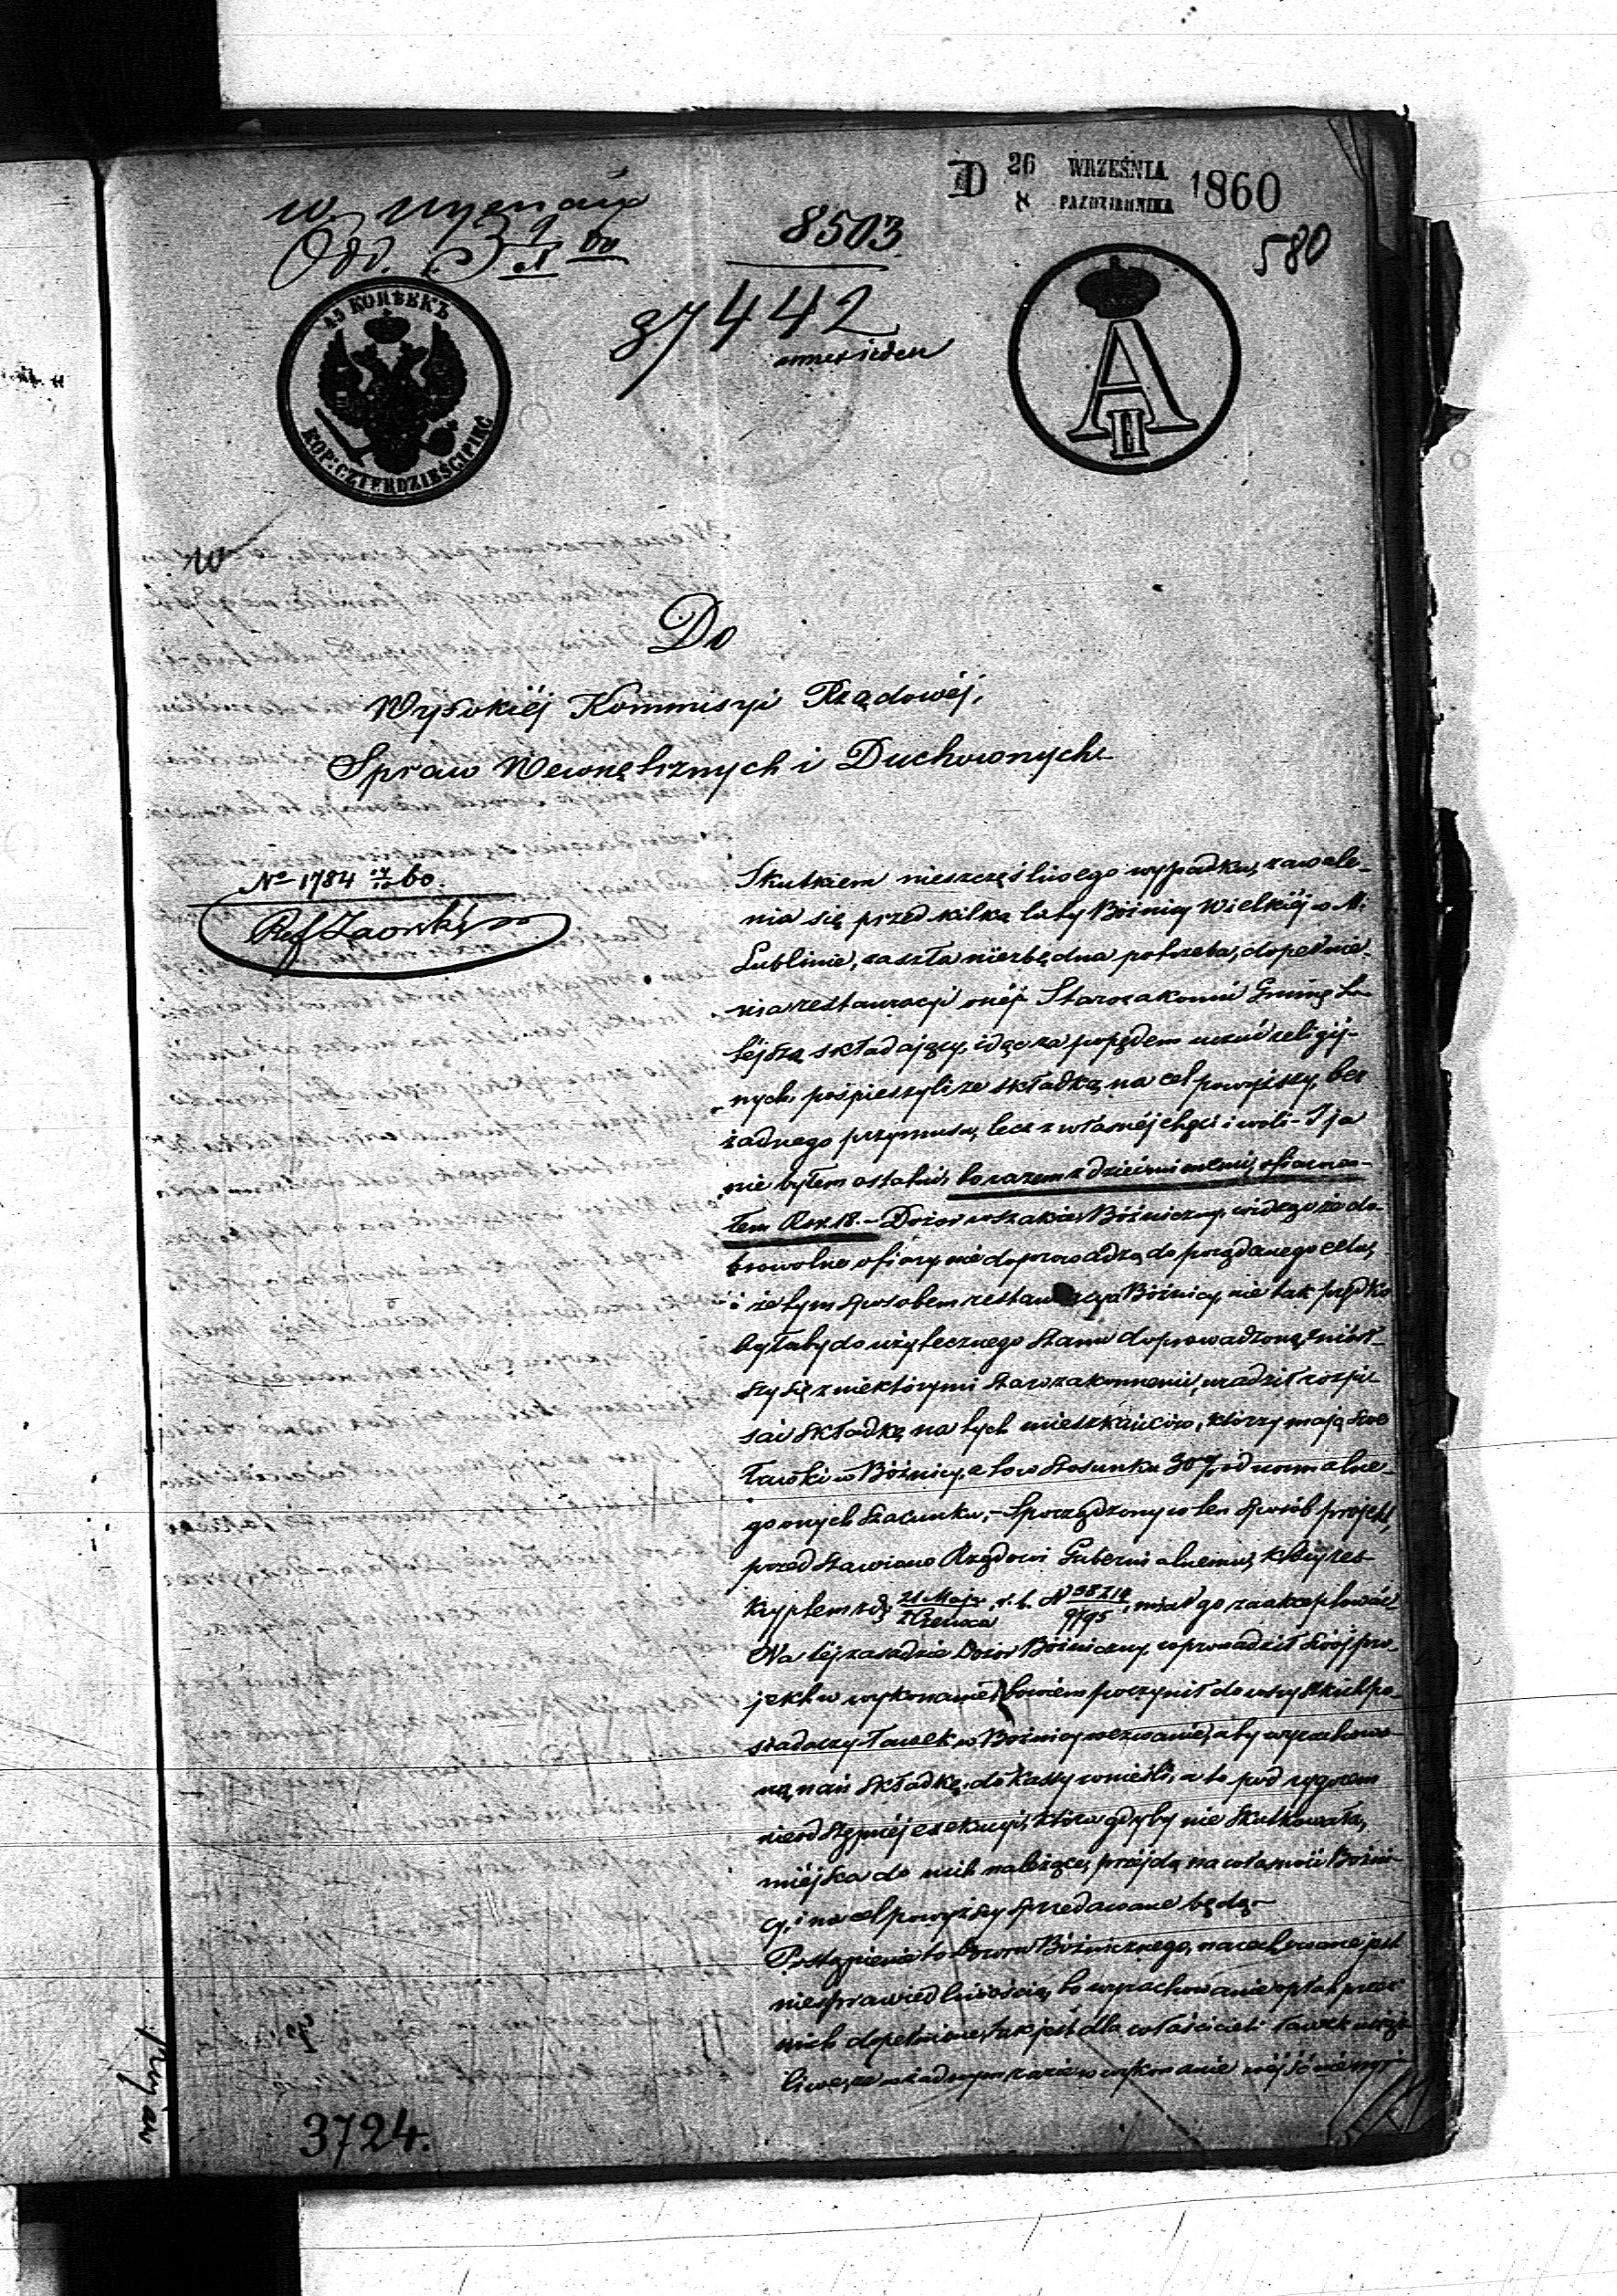 D 26 WRZEŚNIA 1860
8 PAŹDZIERNIKA
580
8503
37442
45 КОПѢЕКЪ
KOP: CZTERDZIEŚCI PIĘĆ
A II
Do
Wysokiéj Kommisyi Rządowéj,
Spraw Wewnętrznych i Duchownych
No 1784 60.
Skutkiem nieszczęśliwego wypadku, zawale-
nia się przed kilką laty Bóżnicy Wielkiéj w M:
Lublinie, zaszła niezbędna potrzeba, dopełnie-
nia restauracyi onéj. Starozakonni Gminę tu-
téjszą składający, idąc za popędem uczuć religij-
nych, pośpieszyli ze składką na cel powyższy, bez
żadnego przymusu, lecz z własnéj chęci i woli - I ja
nie byłem ostatni, bo razem z dziećmi memi, ofiarowa-
łem Rsr. 18. - Dozór wszakże Bóżniczny, widząc że do-
browolne ofiary, nie doprowadzą do porządanego celu,
i że tym sposobem restauracya Bóżnicy, nie tak prędko
byłaby do użytecznego stanu doprowadzoną, zniósł-
szy się z niektórymi starozakonnemi, uradził rozpi-
sać składkę na tych mieszkańców, którzy mają swe
ławki w Bóżnicy, a to w stosunku 30% od normalne-
go onych szacunku, - Sporządzony w ten sposób projekt,
przedstawiono Rządowi Gubernialnemu, który res-
kryptem z d. 21 Maja / 2 Czerwca r. b. N 38214 / 9795, miał go zaakceptować
Na téj zasadzie Dozór Bóżniczny, wprowadził swój pro-
jekt w wykonanie, bowiem poczynił do wszystkich po-
siadaczy ławek w Bóżnicy wezwanie, aby wyrachowa-
ną nań składkę, do kassy wnieśli, a to pod rygorem
nieodstępnéj exekucyi, która gdyby nie skutkowała,
miéjsca do nich należące, przéjdą na własność Bóżni-
cy, i na cel powyższy sprzedawane będą. -
Postąpienie to Dozoru Bóżnicznego, nacechowane jest
niesprawiedliwością, bo wyrachowanie opłat przez
nich dopełnione, tak jest dla właścicieli ławek uciąż-
liwe, że w żadnym razie w wykonanie wéjść nie
3724.